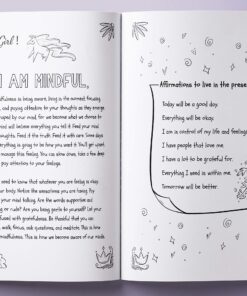 Girl!
I AM MINDFUL,
mindfulness is being aware, living in the moment, focusing
and paying attention to your thoughts as they emerge.
shaped by our mind, for we become what we choose to
mind will believe everything you tell it. Feed your mind
thoughts. Feed it the truth. Feed it with care. Some days
everything is going to be how you want it. You'll get
manage this feeling. You can slow down, take a few deep
pay attention to your body.
need to know that whatever you are feeling is okay.
your body. Notice the sensations you are having. Pay
your mind talking. Are the words supportive and
or rude? Are you being gentle to yourself? Let your
with gratefulness. Be thankful that you can
walk, focus, ask questions, and meditate. This is how
mindful. This is how we become aware of our minds
Affirmations to live in the prese
Today will be a good day.
Everything will be okay.
I am in control of my life and feelings
I have people that love me.
I have a lot to be grateful for.
Everything I need is within me.
Tomorrow will be better.